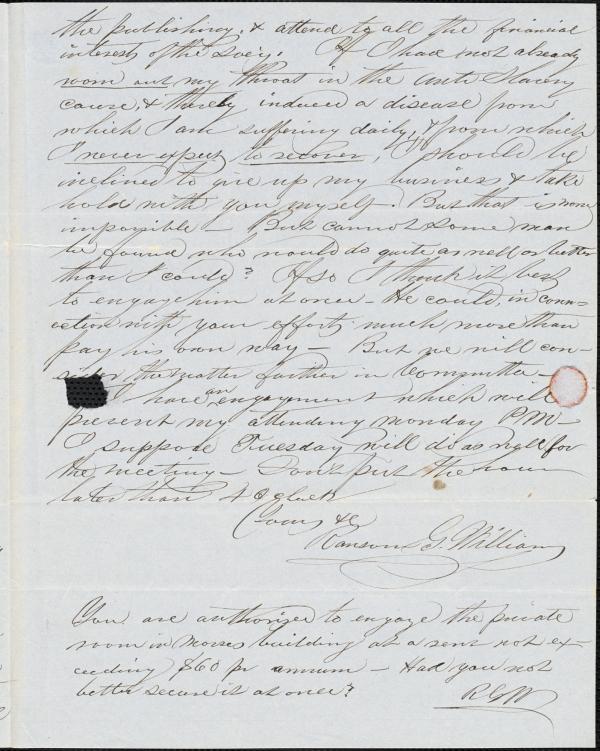 the publishing, & attend to all the financial
interests of the Socy. If I had not already
worn out my throat in the Anti Slavery
cause, & thereby induced a disease from
which I am suffering daily, & from which
I never expect to recover, I should be
inclined to give up my business & take
hold with you myself. But that is now
impossible — But cannot some man
be found who would do quite as well or better
than I could? If so I think it best
to engage him at once — He could, in conn-
ection with your efforts much more than
pay his own way — But we will con-
sider the matter further in Committee —
I have an engagement which will
prevent my attending monday P.M —
I suppose Tuesday will do as well for
the meeting — Don't put the hour
later than 4 O'clock
Yours &c
Ransom G. Williams
You are authorised to engage the private
room in Morses building at a rent not ex-
ceeding $60 pr annum — Had you not
better secure it at once?
R G W